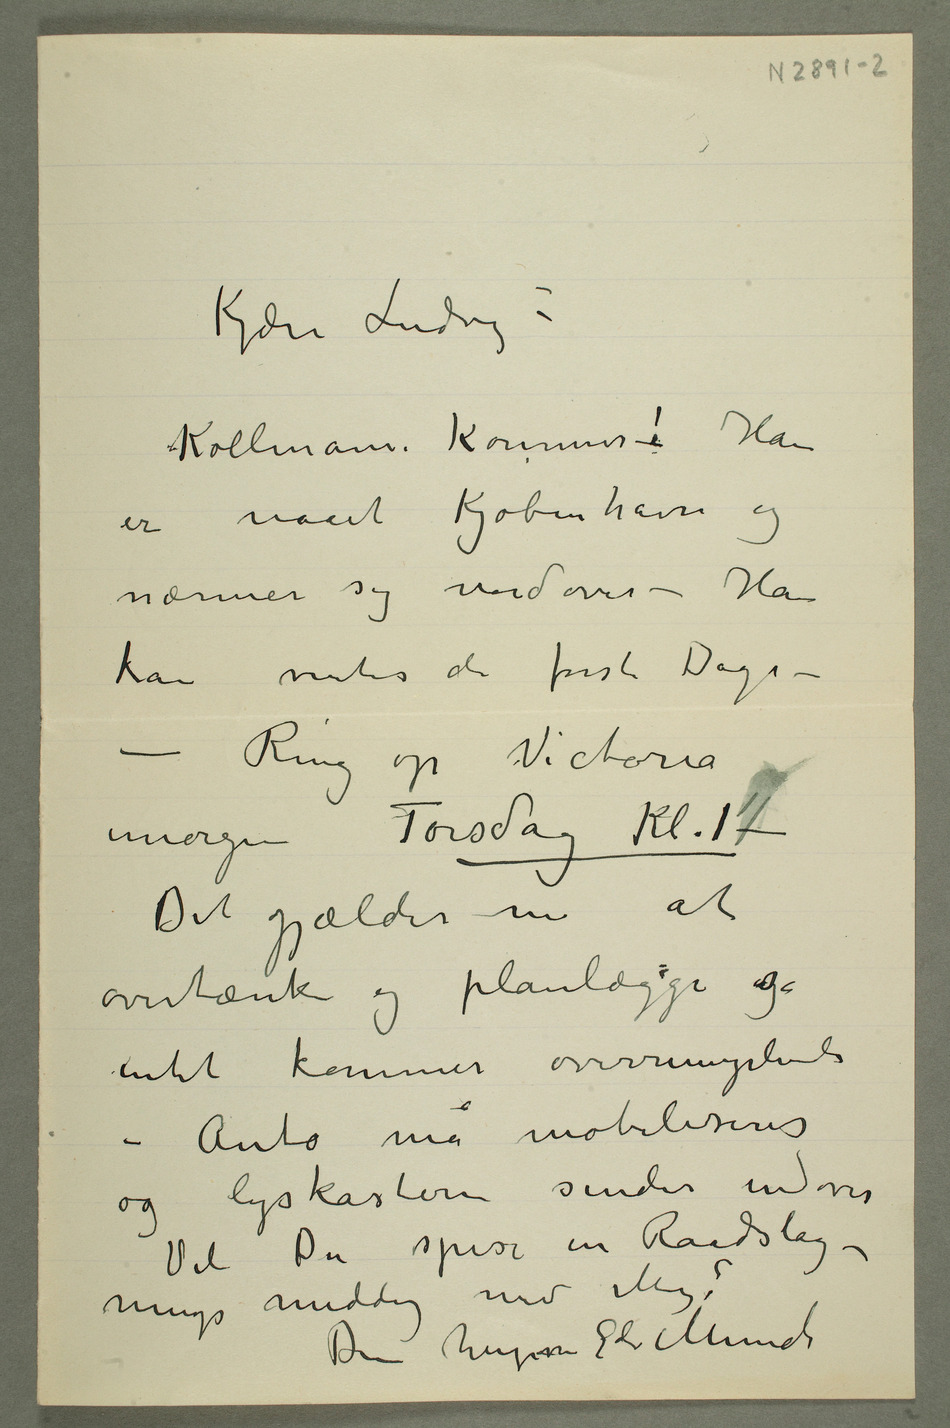 N 2891-2
Kjære Ludvig –
Kollmann kommer! Han
er naaet Kjøbenhavn og
nærmer sig nordover – Han
kan ventes de første Dage –
– Ring op Victoria
imorgen Torsdag Kl. 1 –
Det gjælder nu at
overtænke og planlægge og
intet kommer overrumplende
– Auto må mobiliseres
og lyskastere sendes indover
Vil Du spise en Raadslag-
nings middag med mig?
Din hengivne Edv Munch